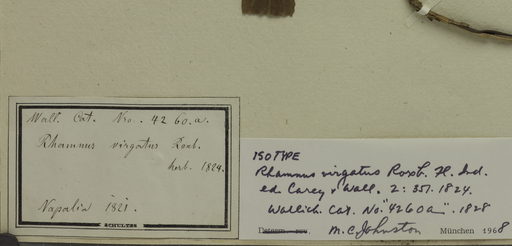 Wall. Cat. Nro. 4260.a.
Rhamnus virgatus Roxb.
herb. 1824.
Napalia 1821.
SCHULTES
ISOTYPE
Rhamnus virgatus Roxb. Fl. Ind.
ed Carey & Wall. 2: 351. 1824.
Wallich. Cat. No. "4260a". 1828
M.C. Johnston München 1968